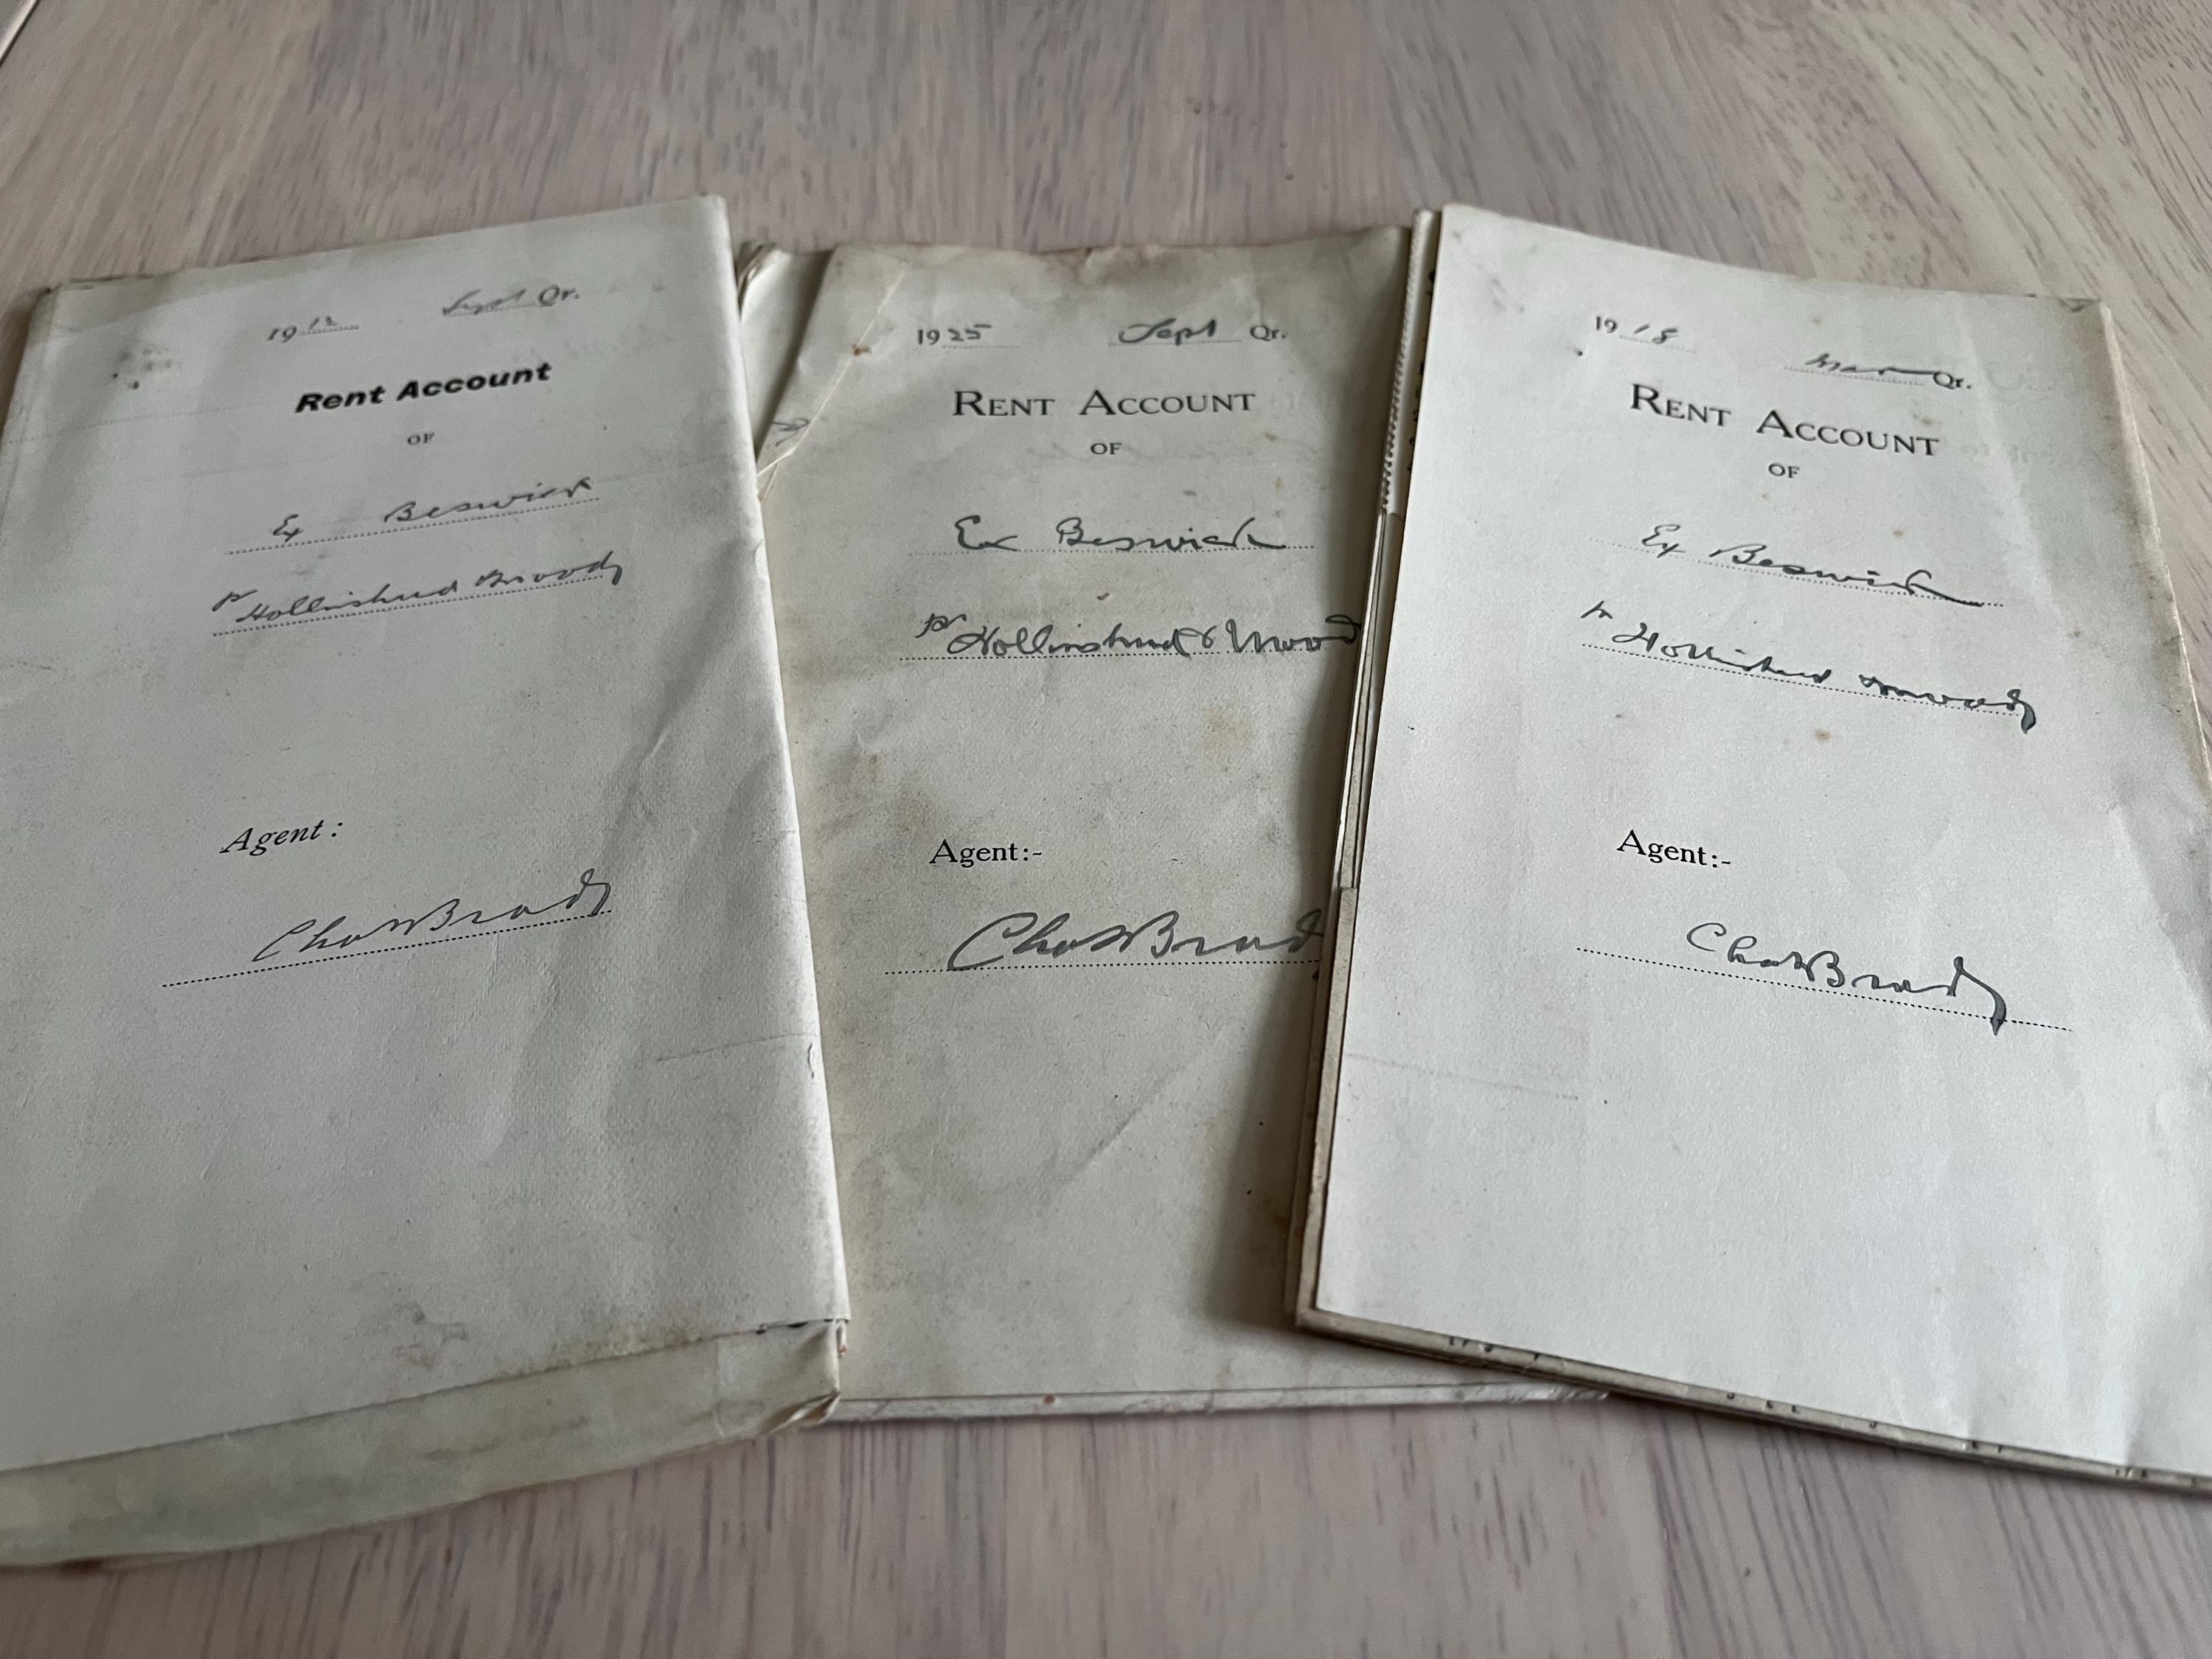 1912 Sept Qr.
Rent Account
OF
Ex Beswick
pr Hollinshead & Moody
Agent :
Chas Brady
1925 Sept Qr.
RENT ACCOUNT
OF
Ex Beswick
pr Hollinshead & Mood
Agent:-
Chas Brad
1918 Mar Qr.
RENT ACCOUNT
OF
Ex Beswick
pr Hollinshead & Moody
Agent:-
Chas Brady